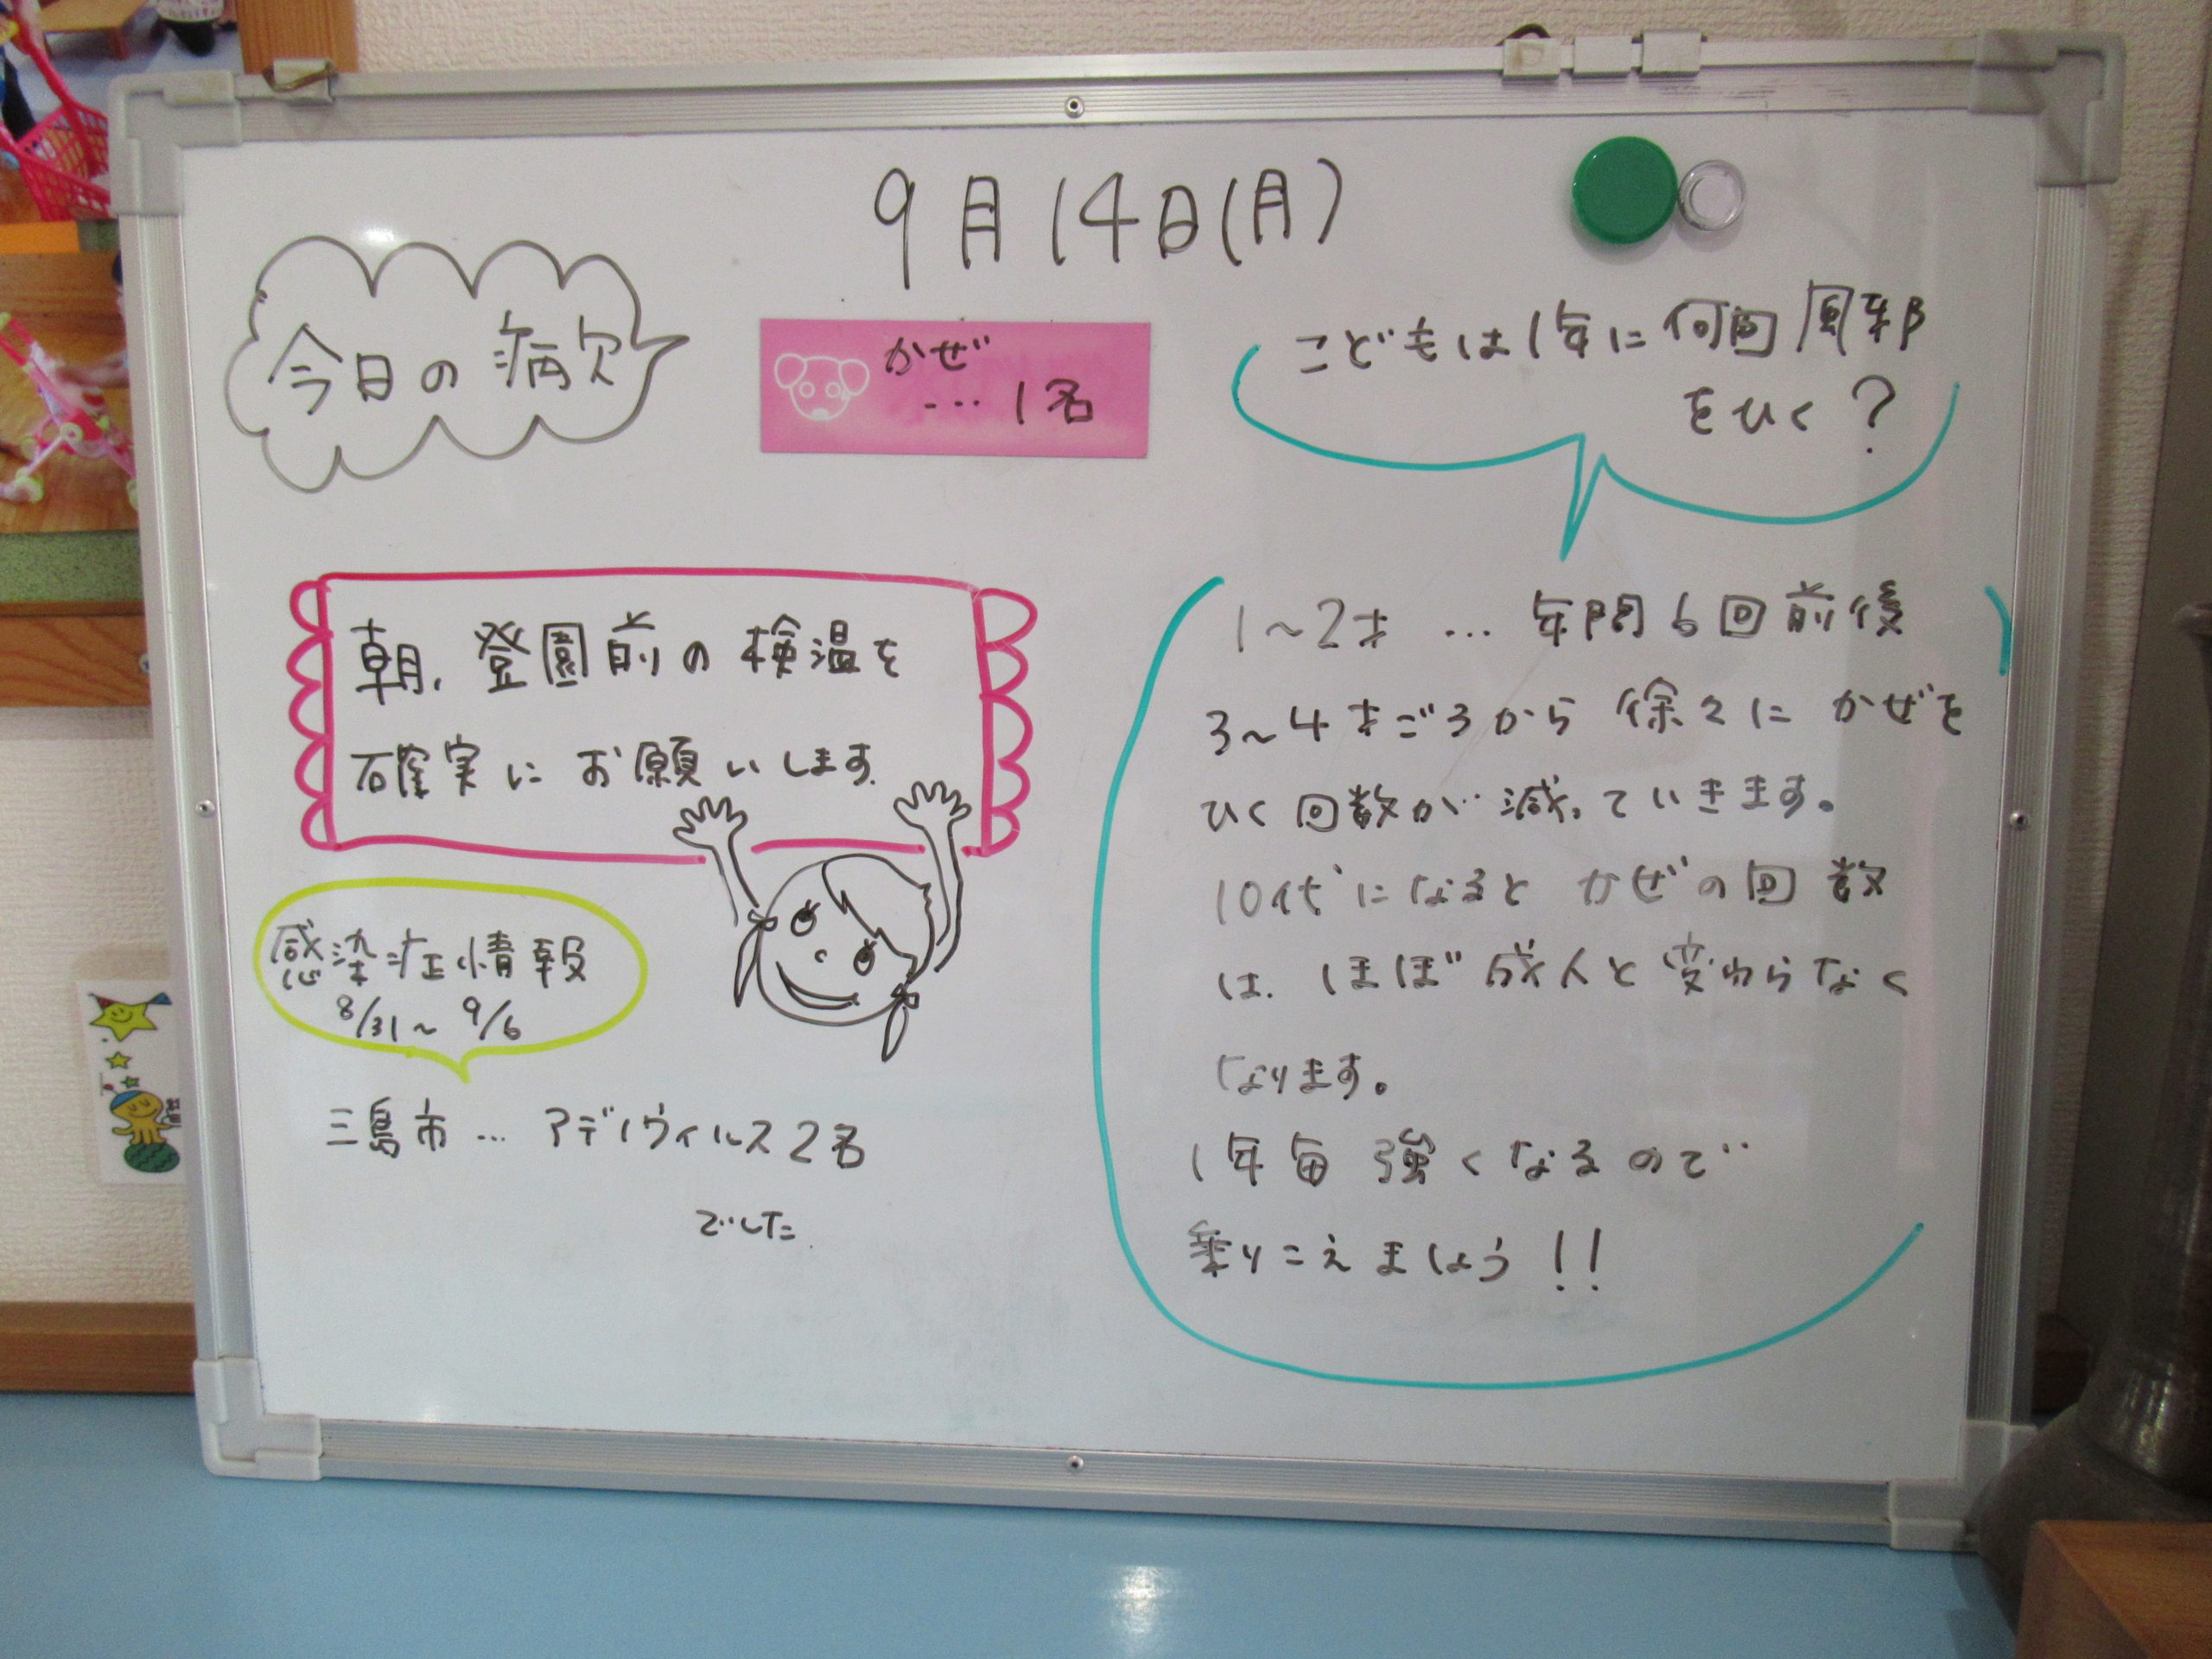 9月14日(月)
今日の病欠
かぜ
…1名
こどもは1年に何回風邪
をひく?
朝、登園前の検温を
確実にお願いします.
感染症情報
8/31~9/6
三島市…アデノウィルス2名
でした.
1~2才…年間6回前後
3~4才ごろから徐々にかぜを
ひく回数が減っていきます。
10代になるとかぜの回数
は、ほぼ成人と変わらなく
なります。
1年毎強くなるので
乗りこえましょう!!